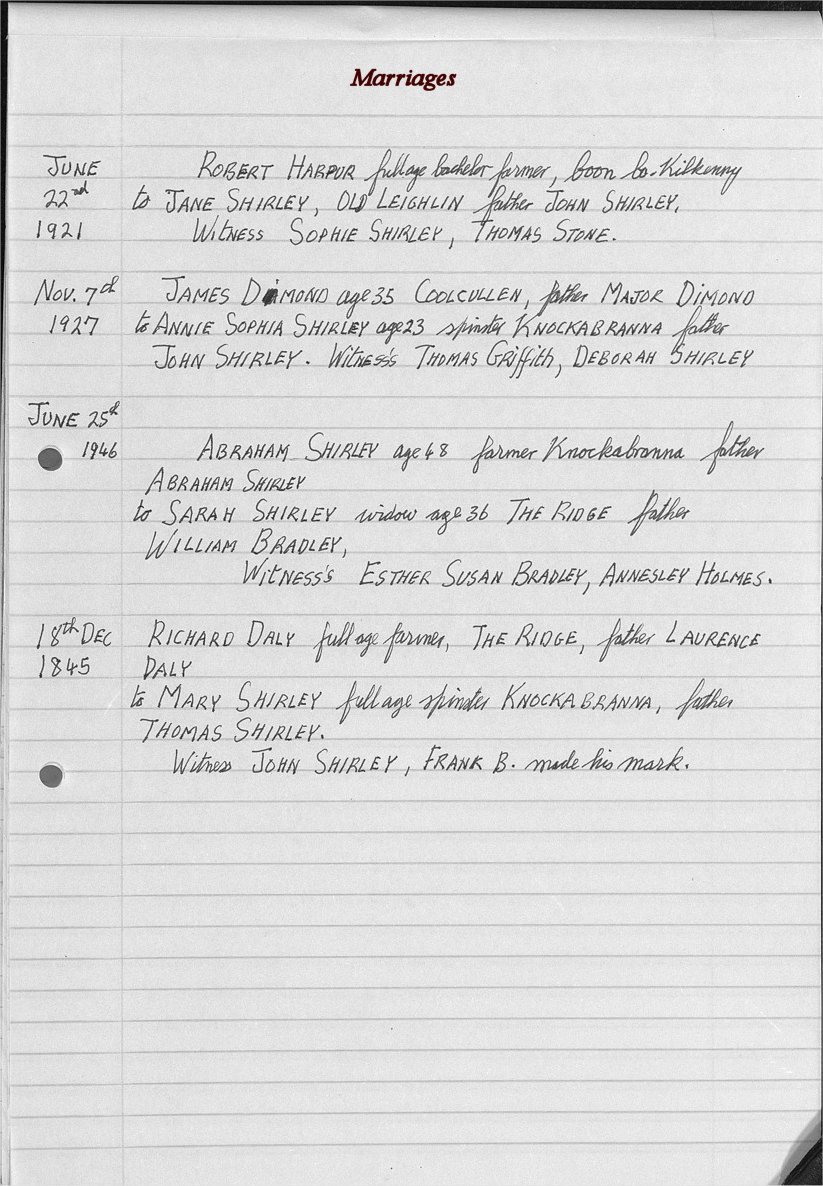 Marriages
JUNE ROBERT HARPUR full age bachelor farmer, Coon Co. Kilkenny
22nd to JANE SHIRLEY, OLD LEIGHLIN father JOHN SHIRLEY.
1921 WITNESS SOPHIE SHIRLEY, THOMAS STONE.
NOV. 7th JAMES DIMOND age 35 COOLCULLEN, father MAJOR DIMOND
1927 to ANNIE SOPHIA SHIRLEY age 23 spinster KNOCKABRANNA father
JOHN SHIRLEY. Witness's THOMAS Griffith, DEBORAH SHIRLEY
JUNE 25th
1946 ABRAHAM SHIRLEY age 48 farmer Knockabranna father
ABRAHAM SHIRLEY
to SARAH SHIRLEY widow age 36 THE RIDGE father
WILLIAM BRADLEY,
WITNESS'S ESTHER SUSAN BRADLEY, ANNESLEY HOLMES.
18th DEC RICHARD DALY full age farmer, THE RIDGE, father LAURENCE
1845 DALY
to MARY SHIRLEY full age spinster KNOCKABRANNA, father
THOMAS SHIRLEY.
Witness JOHN SHIRLEY, FRANK B. made his mark.